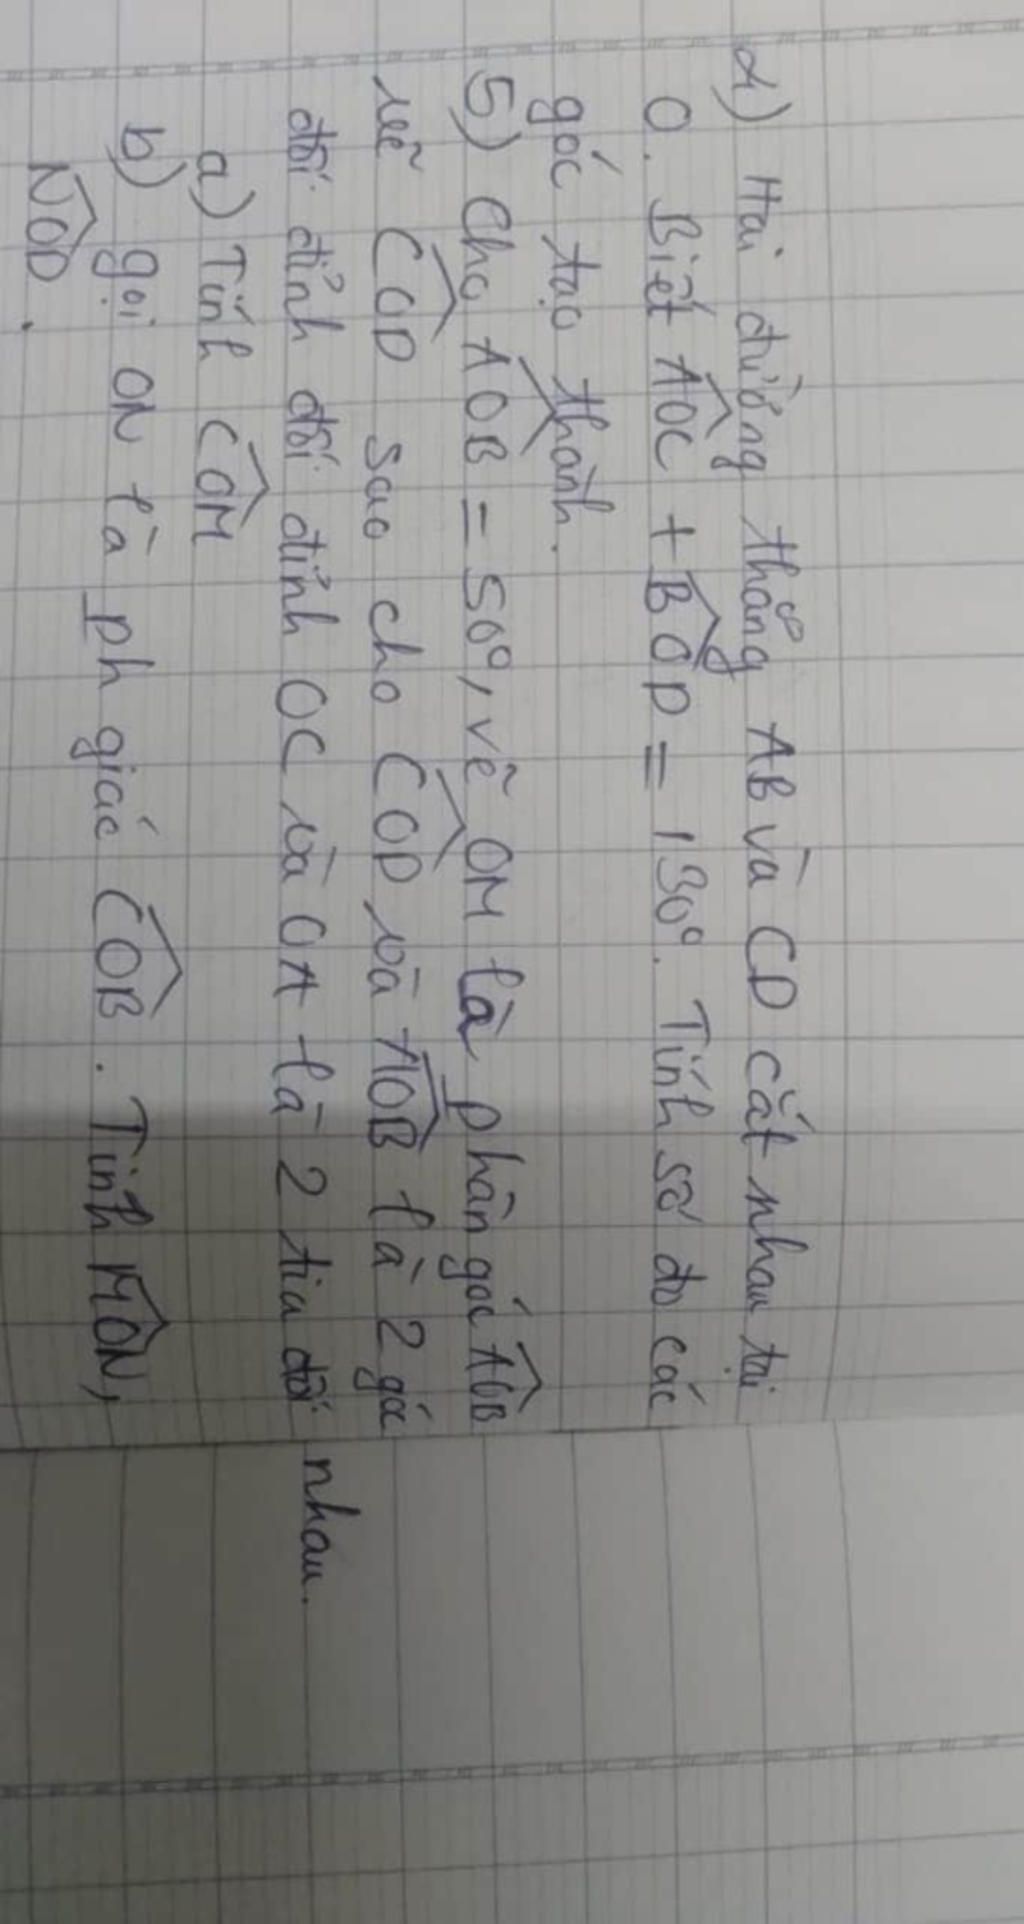 4) Hai đường thẳng AB và CD cắt nhau tại
O. Biết AOC + BOD = 130°. Tính số đo các
góc tạo thành.
5) Cho AOB = 50°, vẽ OM là phân góc AOB
vẽ COD sao cho COD và AOB là 2 góc
đối đỉnh đối đỉnh OC và OA là 2 tia đối nhau.
a) Tính COM
b) gọi ON là ph giác COB. Tính MON,
NOD.